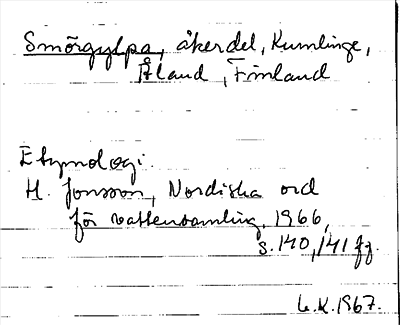 Smörgylpa, åkerdel, Kumlinge,
Åland, Finland
Etymologi.
H. Jonsson, Nordiska ord
för vattensamling, 1966,
s. 140, 141 ff.
L.K. 1967.